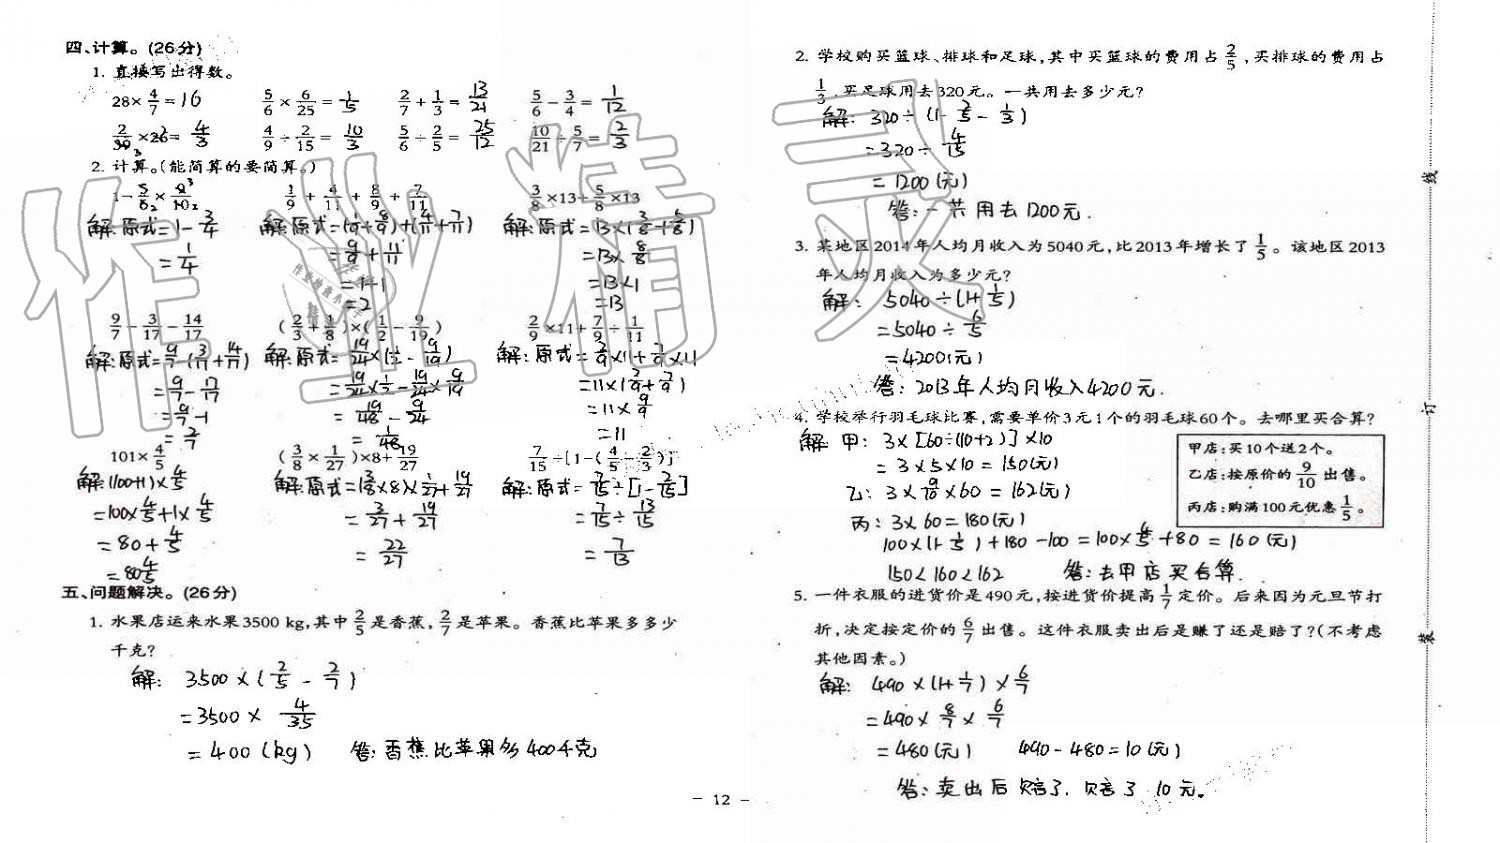 四、计算。(26分)
1. 直接写出得数。
28×4/7=16  5/6×6/25=1/5  2/7+1/3=13/21  5/6-3/4=1/12
2/39×26=4/3  4/9÷2/15=10/3  5/6÷2/5=25/12  10/21÷5/7=2/3
2. 计算。(能简算的要简算。)
1-5/6×9/10  1/9+4/11+8/9+7/11  3/8×13+5/8×13
解:原式=1-3/4  解:原式=(1/9+8/9)+(4/11+7/11)  解:原式=13×(3/8+5/8)
=1/4  =9/9+11/11  =13×8/8
=1+1  =13×1
=2  =13
9/7-3/17-14/17  (2/3+1/8)×(1/2-9/19)  2/9×11+7/9÷1/11
解:原式=9/7-(3/17+14/17)  解:原式=19/24×(1/2-9/19)  解:原式=2/9×11+7/9×11
=9/7-17/17  =19/24×1/2-19/24×9/19  =11×(2/9+7/9)
=9/7-1  =19/48-9/24  =11×9/9
=2/7  =1/48  =11
101×4/5  (3/8×1/27)×8+19/27  7/15÷[1-(4/5-2/3)]
解:(100+1)×4/5  解:原式=(3/8×8)×1/27+19/27  解:原式=7/15÷[1-2/15]
=100×4/5+1×4/5  =3/27+19/27  =7/15÷13/15
=80+4/5  =22/27  =7/13
=80 4/5
五、问题解决。(26分)
1. 水果店运来水果3500 kg,其中2/5是香蕉,2/7是苹果。香蕉比苹果多多少
千克?
解: 3500×(2/5-2/7)
=3500×4/35
=400(kg)  答:香蕉比苹果多400千克
2. 学校购买篮球、排球和足球,其中买篮球的费用占2/5,买排球的费用占
1/3,买足球用去320元。一共用去多少元?
解: 320÷(1-2/5-1/3)
=320÷4/15
=1200(元)
答:一共用去1200元.
3. 某地区2014年人均月收入为5040元,比2013年增长了1/5。该地区2013
年人均月收入为多少元?
解: 5040÷(1+1/5)
=5040÷6/5
=4200(元)
答:2013年人均月收入4200元.
4. 学校举行羽毛球比赛,需要单价3元1个的羽毛球60个。去哪里买合算?
甲店:买10个送2个。
乙店:按原价的9/10出售。
丙店:购满100元优惠1/5。
解 甲: 3×[60÷(10+2)]×10
=3×5×10=150(元)
乙: 3×9/10×60=162(元)
丙: 3×60=180(元)
100×(1-1/5)+180-100=100×4/5+80=160(元)
150<160<162  答:去甲店买合算.
5. 一件衣服的进货价是490元,按进货价提高1/7定价。后来因为元旦节打
折,决定按定价的6/7出售。这件衣服卖出后是赚了还是赔了?(不考虑
其他因素。)
解: 490×(1+1/7)×6/7
=490×8/7×6/7
=480(元)  490-480=10(元)
答:卖出后赔了,赔了10元。
- 12 -
线
订
装
作业精灵